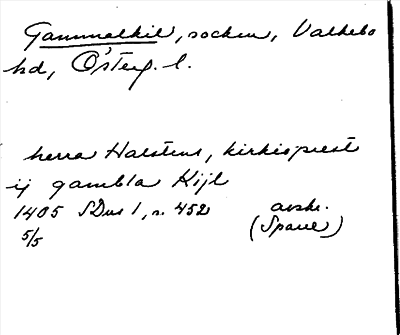 Gammalkil, socken, Valkebo
hd, Österg. l.
herra Halstens, kirkioprest
ij gambla Kijl
1405 SDns 1, s. 452 avskr.
5/5 (Spare)